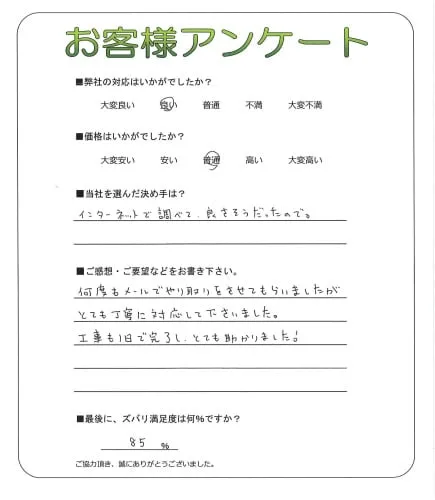 お客様アンケート
■弊社の対応はいかがでしたか？
大変良い 良い 普通 不満 大変不満
■価格はいかがでしたか？
大変安い 安い 普通 高い 大変高い
■当社を選んだ決め手は？
インターネットで調べて、良さそうだったので。
■ご感想・ご要望などをお書き下さい。
何度もメールでやり取りをさせてもらいましたが
とても丁寧に対応して下さいました。
工事も1日で完了し、とても助かりました！
■最後に、ズバリ満足度は何%ですか？
85 %
ご協力頂き、誠にありがとうございました。